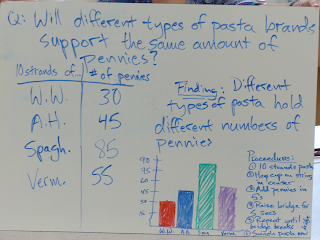 Q: Will different types of pasta brands
support the same amount of
pennies?
10 strands of
# of pennies
W.W. 30
A.H. 45
Spagh. 85
Verm. 55
Finding: Different
types of pasta hold
different numbers of
pennies
90
75
60
45
30
15
W.W. A.H. Verm.
Procedures:
① 10 strands pasta
② Hang cup on string
③ Add pennies in
5's
④ Raise bridge for
5 secs
⑤ Repeat until
bridge breaks
⑥ Switch pasta